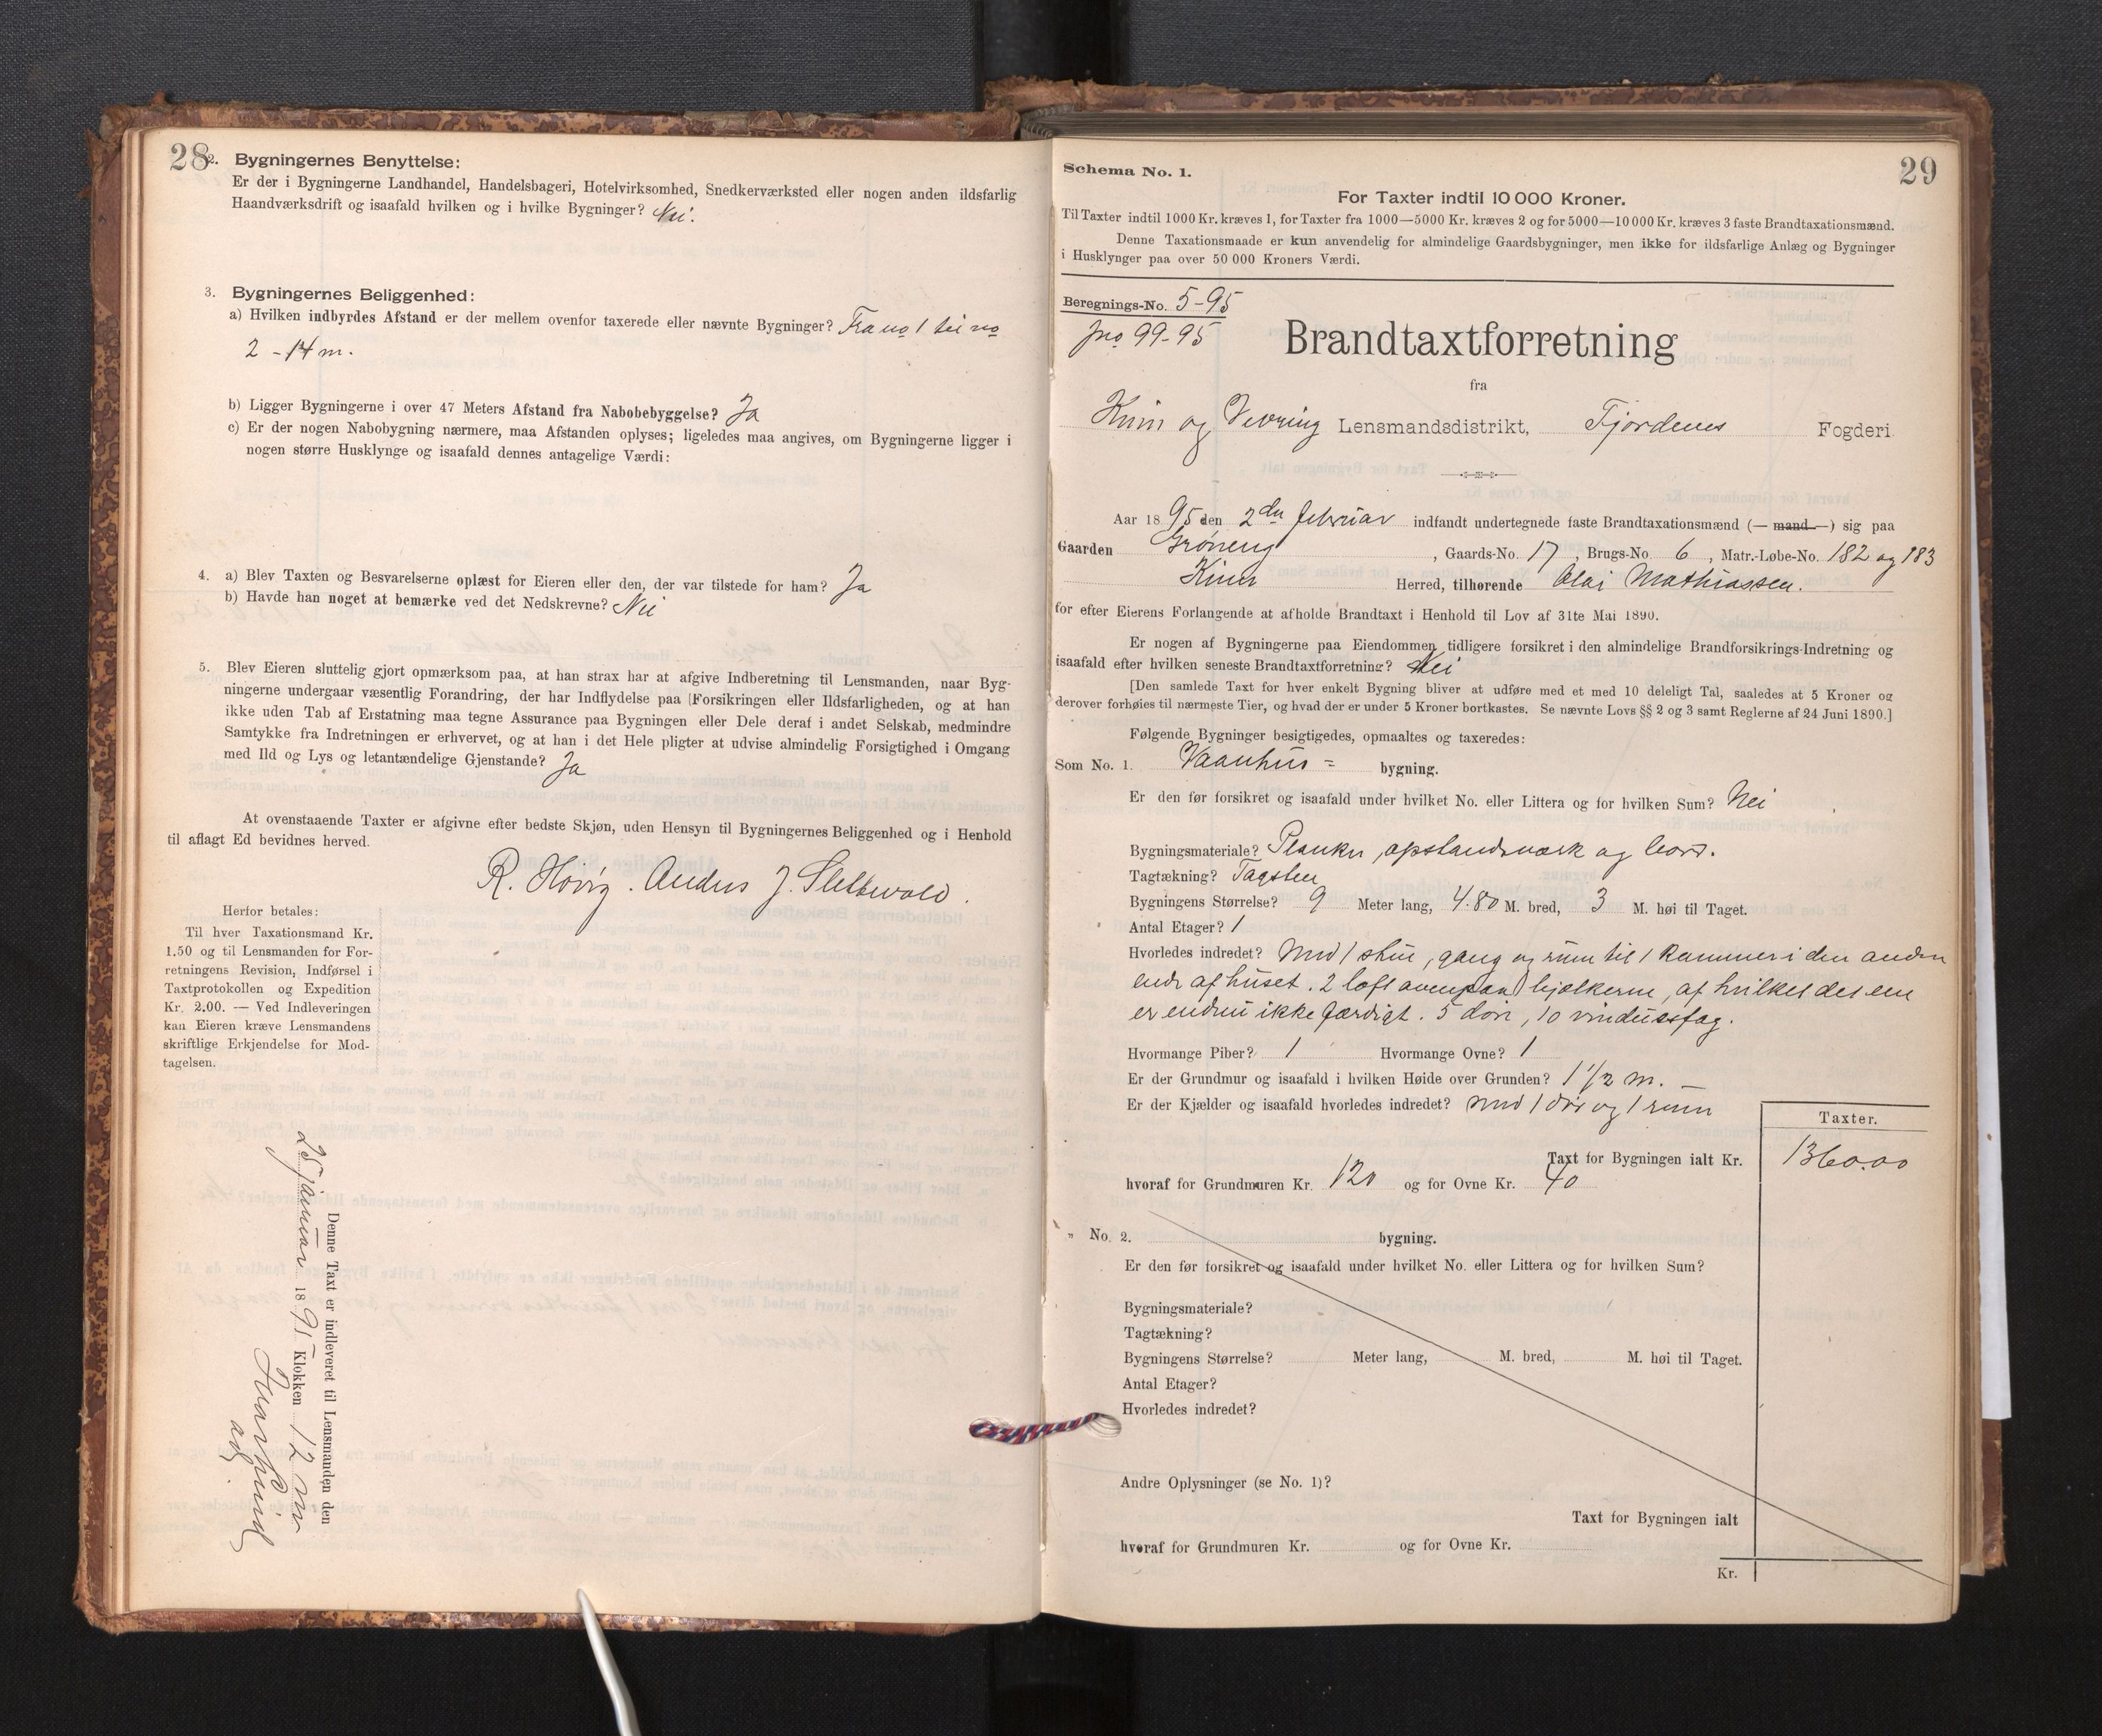 28
2. Bygningernes Benyttelse:
Er der i Bygningerne Landhandel, Handelsbageri, Hotelvirksomhed, Snedkerværksted eller nogen anden ildsfarlig
Haandværksdrift og isaafald hvilken og i hvilke Bygninger? Nei.
3. Bygningernes Beliggenhed:
a) Hvilken indbyrdes Afstand er der mellem ovenfor taxerede eller nævnte Bygninger? Fra no 1 til no
2 - 14 m.
b) Ligger Bygningerne i over 47 Meters Afstand fra Nabobebyggelse? Ja
c) Er der nogen Nabobygning nærmere, maa Afstanden oplyses; ligeledes maa angives, om Bygningerne ligger i
nogen større Husklynge og isaafald dennes antagelige Værdi:
4. a) Blev Taxten og Besvarelserne oplæst for Eieren eller den, der var tilstede for ham? Ja
b) Havde han noget at bemærke ved det Nedskrevne? Nei
5. Blev Eieren sluttelig gjort opmærksom paa, at han strax har at afgive Indberetning til Lensmanden, naar Byg-
ningerne undergaar væsentlig Forandring, der har Indflydelse paa Forsikringen eller Ildsfarligheden, og at han
ikke uden Tab af Erstatning maa tegne Assurance paa Bygningen eller Dele deraf i andet Selskab, medmindre
Samtykke fra Indretningen er erhvervet, og at han i det Hele pligter at udvise almindelig Forsigtighed i Omgang
med Ild og Lys og letantændelige Gjenstande? Ja
At ovenstaaende Taxter er afgivne efter bedste Skjøn, uden Hensyn til Bygningernes Beliggenhed og i Henhold
til aflagt Ed bevidnes herved.
R. Høvig. Anders J. Slettevold.
Herfor betales:
Til hver Taxationsmand Kr.
1.50 og til Lensmanden for For-
retningens Revision, Indførsel i
Taxtprotokollen og Expedition
Kr. 2.00. — Ved Indleveringen
kan Eieren kræve Lensmandens
skriftlige Erkjendelse for Mod-
tagelsen.
Denne Taxt er indleveret til Lensmanden den
25 januar 1891 Klokken 12 m
29
Schema No. 1.
For Taxter indtil 10 000 Kroner.
Til Taxter indtil 1000 Kr. kræves 1, for Taxter fra 1000—5000 Kr. kræves 2 og for 5000—10 000 Kr. kræves 3 faste Brandtaxationsmænd.
Denne Taxationsmaade er kun anvendelig for almindelige Gaardsbygninger, men ikke for ildsfarlige Anlæg og Bygninger
i Husklynger paa over 50 000 Kroners Værdi.
Beregnings-No. 5-95
jno 99-95
Brandtaxtforretning
fra
Kinn og Vevring Lensmandsdistrikt, Fjordenes Fogderi
Aar 1895 den 2den februar indfandt undertegnede faste Brandtaxationsmænd (— mand —) sig paa
Gaarden Grøneng, Gaards-No. 17, Brugs-No. 6, Matr.-Løbe-No. 182 og 183
Kinn Herred, tilhørende Olai Mathiassen.
for efter Eierens Forlangende at afholde Brandtaxt i Henhold til Lov af 31te Mai 1890.
Er nogen af Bygningerne paa Eiendommen tidligere forsikret i den almindelige Brandforsikrings-Indretning og
isaafald efter hvilken seneste Brandtaxtforretning? Nei
[Den samlede Taxt for hver enkelt Bygning bliver at udføre med et med 10 deleligt Tal, saaledes at 5 Kroner og
derover forhøies til nærmeste Tier, og hvad der er under 5 Kroner bortkastes. Se nævnte Lovs §§ 2 og 3 samt Reglerne af 24 Juni 1890.]
Følgende Bygninger besigtigedes, opmaaltes og taxeredes:
Som No. 1. Vaanhus = bygning.
Er den før forsikret og isaafald under hvilket No. eller Littera og for hvilken Sum? Nei
Bygningsmateriale? Planker, opstandsværk og bord.
Tagtækning? Tagsten
Bygningens Størrelse? 9 Meter lang, 4.80 M. bred, 3 M. høi til Taget.
Antal Etager? 1
Hvorledes indredet? Med 1 stue, gang og rum til 1 kammer i den anden
ende af huset. 2 loft ovenpaa bjelkerne, af hvilket det ene
er endnu ikke færdigt. 5 døre, 10 vinduesfag.
Hvormange Piber? 1 Hvormange Ovne? 1
Er der Grundmur og isaafald i hvilken Høide over Grunden? 1 1/2 m. —
Er der Kjælder og isaafald hvorledes indredet? med 1 dør og 1 rum
Taxter.
Taxt for Bygningen ialt Kr. 1360.00
hvoraf for Grundmuren Kr. 120 og for Ovne Kr. 40
„ No. 2. bygning.
Er den før forsikret og isaafald under hvilket No. eller Littera og for hvilken Sum?
Bygningsmateriale?
Tagtækning?
Bygningens Størrelse? Meter lang, M. bred, M. høi til Taget.
Antal Etager?
Hvorledes indredet?
Andre Oplysninger (se No. 1)?
Taxt for Bygningen ialt
hvoraf for Grundmuren Kr. og for Ovne Kr.
Kr.